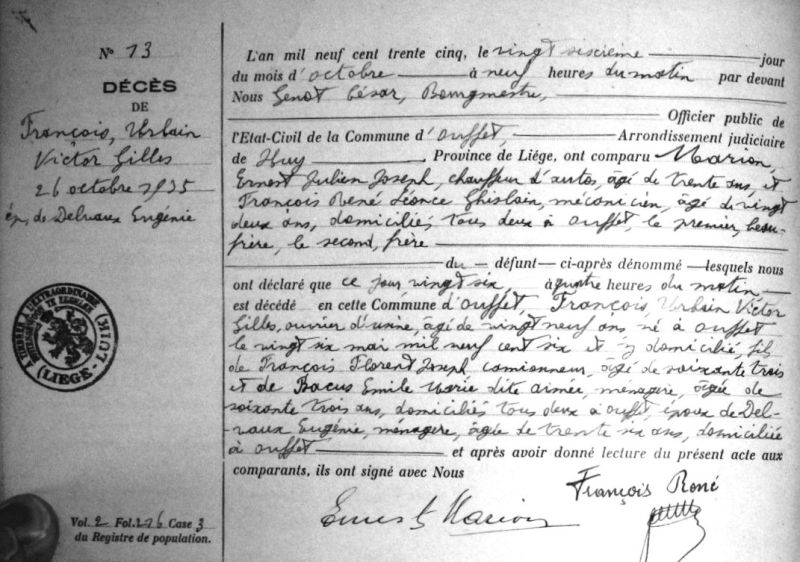 N° 13
DÉCÈS
DE
François, Urbain
Victor Gilles
26 octobre 1935
ép. de Delvaux Eugénie
TIMBRE A L'EXTRAORDINAIRE
BUITENGEWOON TE ZEGELEN
(LIEGE - LUIK)
Vol. 2 Fol. 126 Case 3
du Registre de population.
L'an mil neuf cent trente cinq, le vingt sixcième jour
du mois d'octobre à neuf heures du matin par devant
Nous Genot César, Bourgmestre,
Officier public de
l'Etat-Civil de la Commune d'Ouffet, Arrondissement judiciaire
de Huy, Province de Liége, ont comparu Marion,
Ernest Julien Joseph, chauffeur d'autos, âgé de trente ans, et
François René Léonce Ghislain, mécanicien, âgé de vingt
deux ans, domiciliés tous deux à Ouffet, le premier, beau-
frère, le second, frère
du défunt ci-après dénommé lesquels nous
ont déclaré que ce jour vingt six, à quatre heures du matin
est décédé en cette Commune d'Ouffet, François, Urbain Victor
Gilles, ouvrier d'usine, âgé de vingt neuf ans né à Ouffet
le vingt six mai mil neuf cent six et y domicilié, fils
de François Florent Joseph camionneur, âgé de soixante trois
et de Bacus Emile Marie dite Aimée, ménagère, âgée de
soixante trois ans, domiciliés tous deux à Ouffet époux de Del-
vaux Eugénie, ménagère, âgée de trente six ans, domiciliée
à Ouffet et après avoir donné lecture du présent acte aux
comparants, ils ont signé avec Nous
François René
Ernest Marion